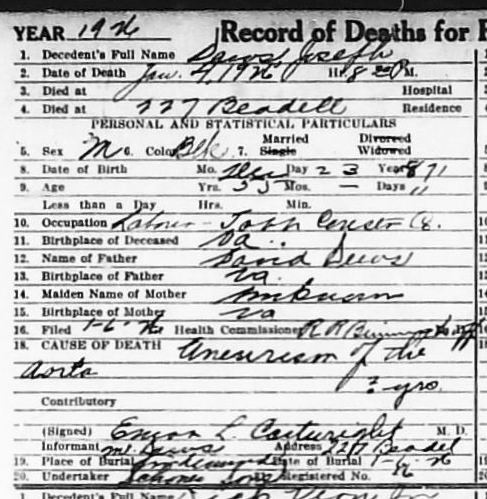 YEAR 1926 Record of Deaths for
1. Decedent's Full Name Dews Joseph
2. Date of Death Jan. 4, 1926 Hr. 8 P. M.
3. Died at Hospital
4. Died at 227 Beadell Residence
PERSONAL AND STATISTICAL PARTICULARS
Married Divorced
5. Sex M 6. Color Blk 7. Single Widowed
8. Date of Birth Mo. Day 23 Year 1871
9. Age Yrs. 55 Mos. — Days 11
Less than a Day Hrs. Min.
10. Occupation Laborer - Co.
11. Birthplace of Deceased Va.
12. Name of Father David Dews
13. Birthplace of Father Va.
14. Maiden Name of Mother Unknown
15. Birthplace of Mother Va
16. Filed 1-6-26 Health Commissioner R R
18. CAUSE OF DEATH Aneurism of the
Aorta
? yrs.
Contributory
(Signed) L. Cartwright M. D.
Informant Dews Address 227 Beadell
19. Place of Burial Date of Burial 26
20. Undertaker Sons Registered No.
1. Decedent's Full Name